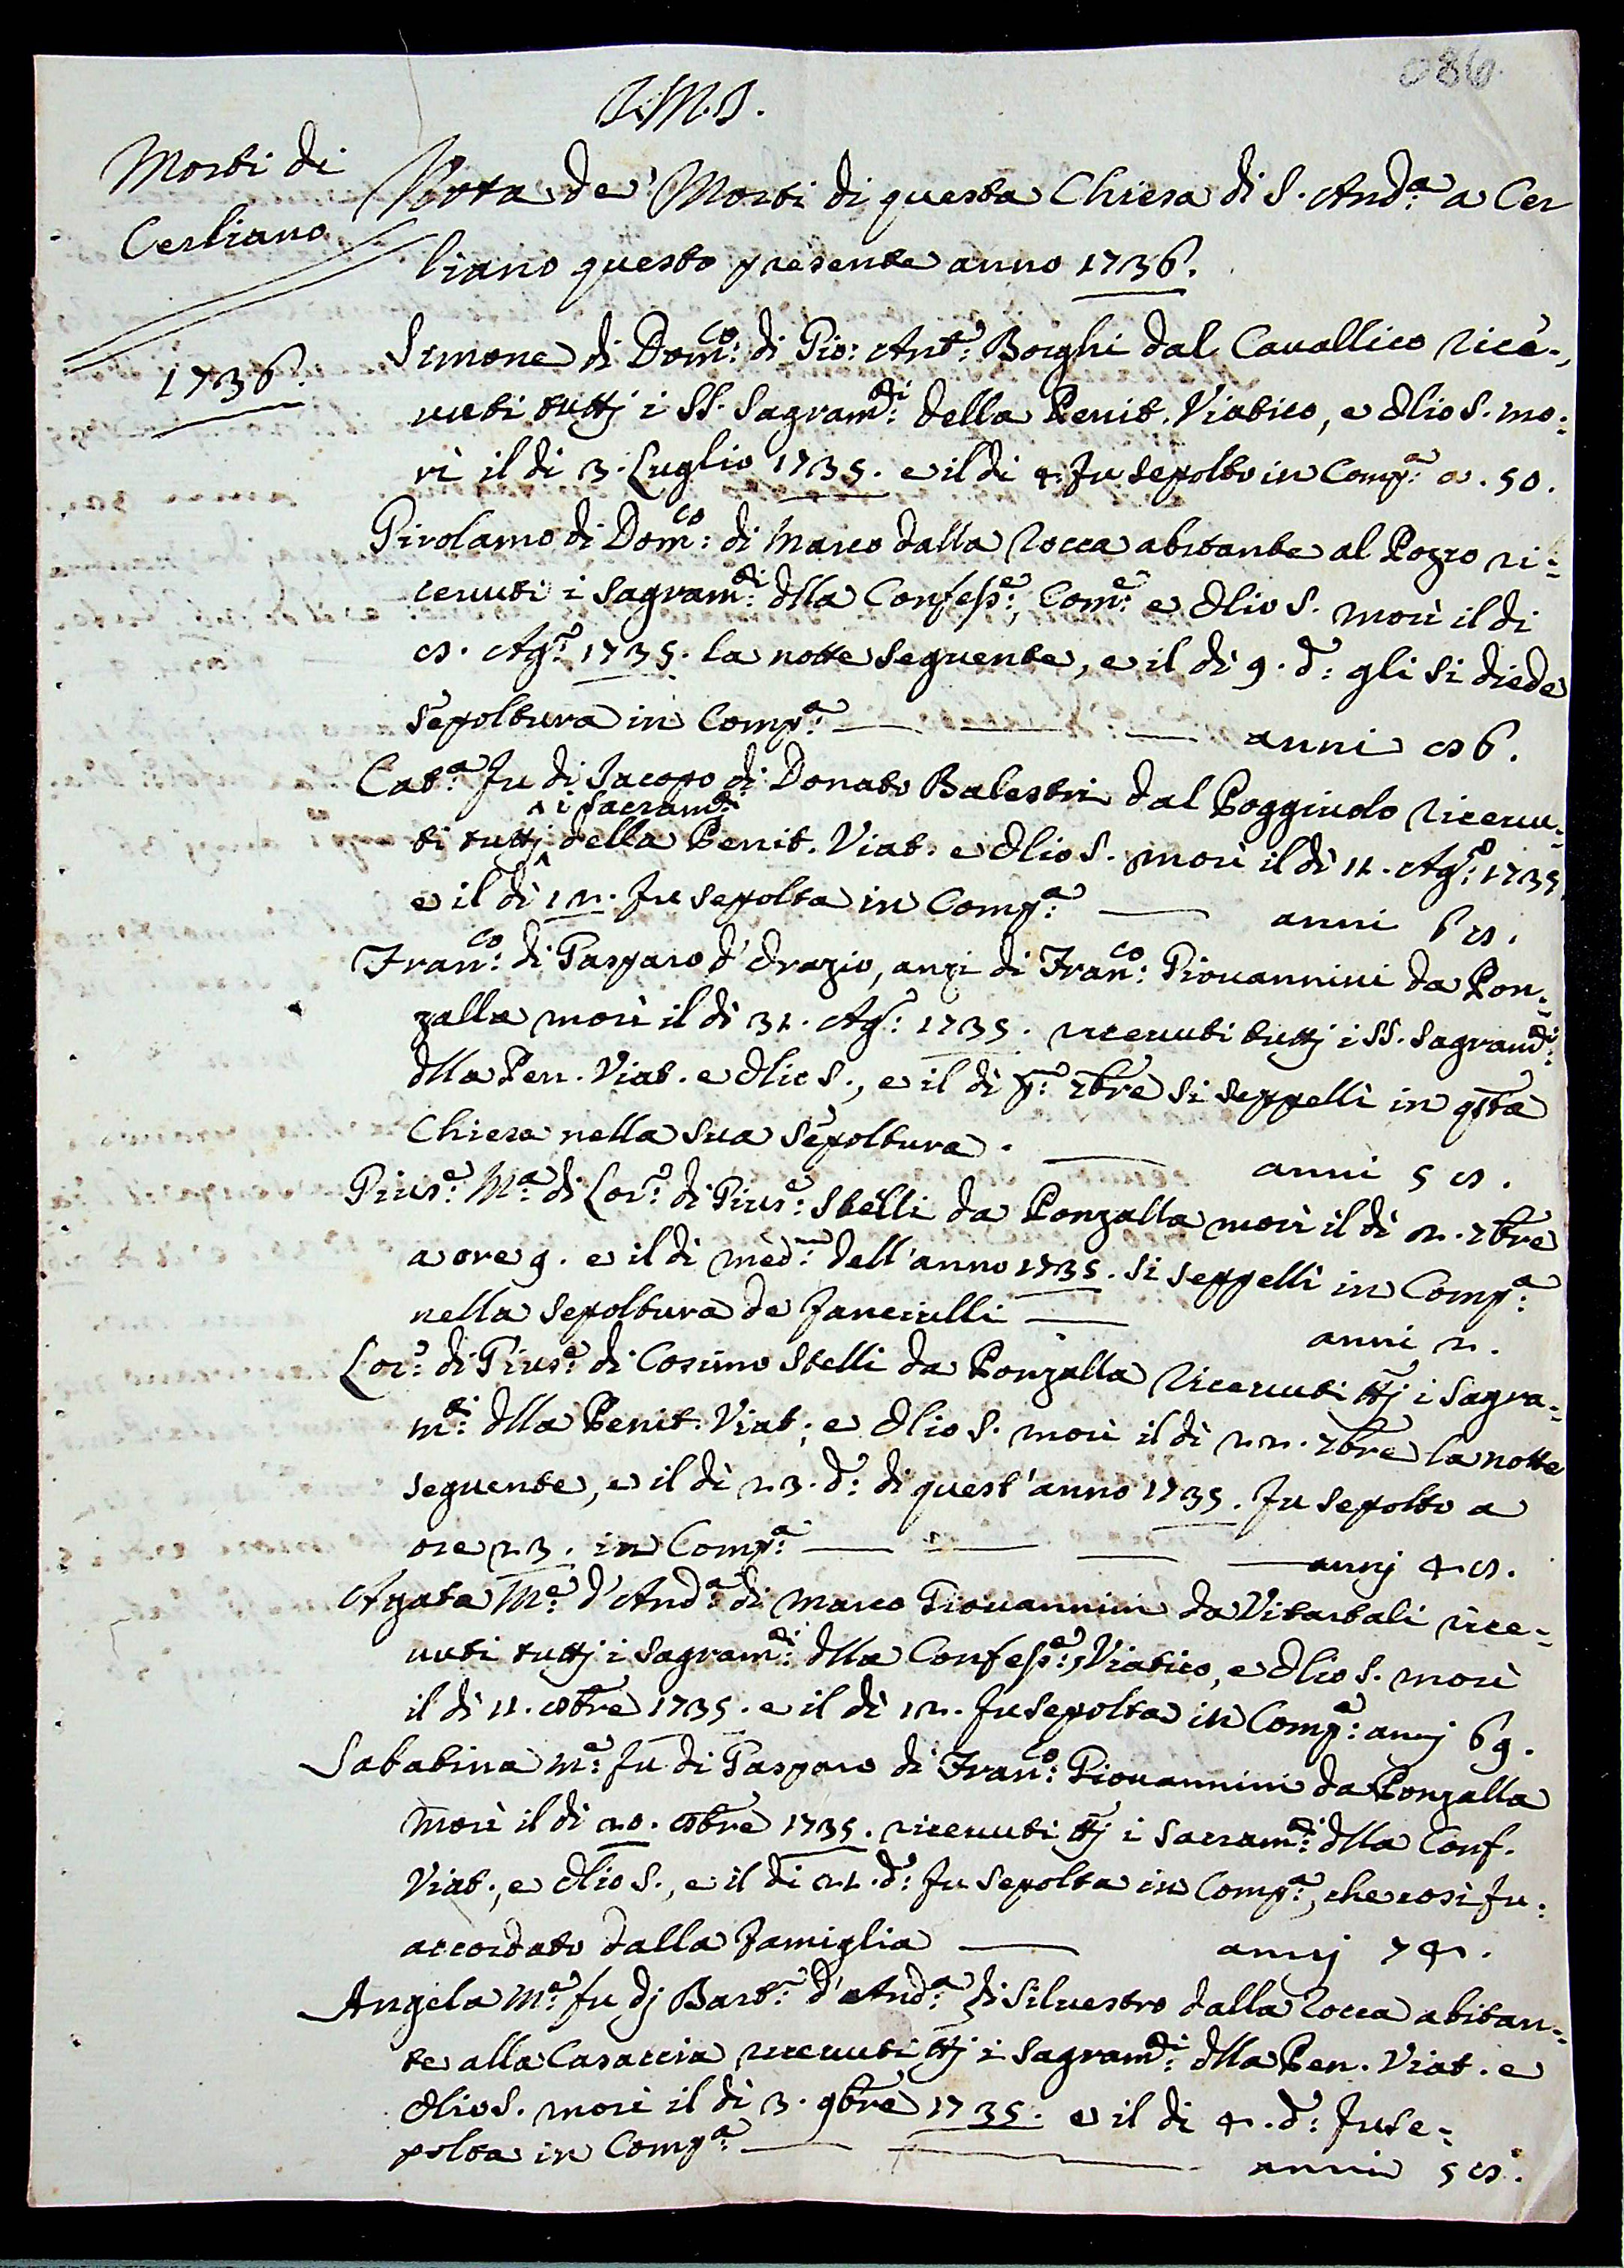 086.
J.M.J.
Morti di
Cerliano
1736.
Nota de' Morti di questa Chiesa di S. And.ª a Cer
liano questo presente anno 1736.
Simone di Dom.co di Gio: Ant.º Borghi dal Cavallico rice-
vuti tuttj i SS. Sagram.ti della Penit. Viatico, e Olio S. mo:
rì il dì 3. Luglio 1735. e il dì 4. fu sepolto in Comp.ª a. 50.
Girolamo di Dom.co di Marco dalla Rocca abitante al Pozzo ri:
cevuti i Sagram.ti dlla Confess.e, Com.e e Olio S. morì il dì
8. Ag.º 1735. la notte seguente, e il dì 9. d.º gli si diede
sepoltura in Comp.ª anni 86.
Cat.ª fu di Jacopo di Donato Balestri dal Poggiuolo ricevu-
i Sacram.ti
ti tuttj della Penit. Viat. e Olio S. morì il dì 11. Ag.º 1735.
e il dì 12. fu sepolta in Comp.ª anni 68.
Fran.co di Gasparo d'Orazio, anzi di Fran.co Giovannini da Pon-
zalla morì il dì 31. Ag.º 1735. ricevuti tuttj i SS. Sagram.ti
dlla Pen. Viat. e Olio S., e il dì p.º 7bre si seppellì in qsta
Chiesa nella sua sepoltura. anni 58.
Gius.e M.ª di Lor.º di Gius.e Stelli da Ponzalla morì il dì 2. 7bre
a ore 9. e il dì med.mo dell'anno 1735. si seppellì in Comp.ª
nella sepoltura de fanciulli anni 2.
Lor.º di Gius.e di Cosimo Stelli da Ponzalla ricevuti ttj i Sagra-
m.ti dlla Penit. Viat. e Olio S. morì il dì 22. 7bre la notte
seguente, e il dì 23. d.º di quest'anno 1735. fu sepolto a
ore 23. in Comp.ª annj 48.
Agata M.e d'And.ª di Marco Giovannini da Vitartali rice-
vuti tuttj i Sagram.ti dlla Confess.e, Viatico, e Olio S. morì
il dì 11. 8bre 1735. e il dì 12. fu sepolta in Comp.ª annj 69.
Sabatina M.e fu di Gasparo di Fran.co Giovannini da Ponzalla
morì il dì 20. 8bre 1735. ricevuti ttj i Sacram.ti dlla Conf.
Viat., e Olio S., e il dì 21. d.º fu sepolta in Comp.ª, che così fu
accordato dalla famiglia annj 74.
Angela M.e fu dj Bart.º d'And.ª di Silvestro dalla Rocca abitan-
te alla Casaccia ricevuti ttj i Sagram.ti dlla Pen. Viat. e
Olio S. morì il dì 3. 9bre 1735. e il dì 4. d.º fu se-
polta in Comp.ª anni 58.